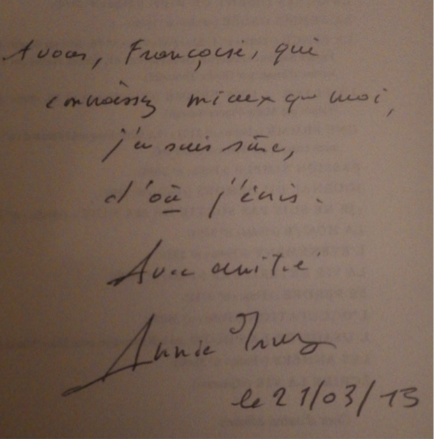 A vous, Françoise, qui
connaissez mieux que moi,
j'en suis sûre,
d'où j'écris.
Avec amitié
Annie Ernaux
le 21/03/13